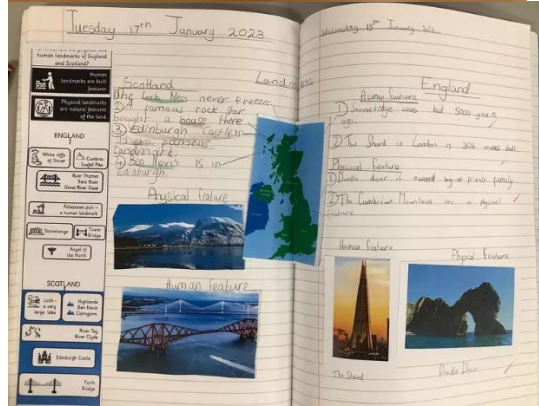 Tuesday 17th January 2023
human landmarks of England
and Scotland?
Human
landmarks are built
features
Physical landmarks
are natural features
of the land
ENGLAND
White cliffs
of Dover
Cumbria
Scafell Pike
River Thames
Trent River
Great River Ouse
Folkestone port –
a human landmark
Stonehenge
Tower
Bridge
Angel of
the North
SCOTLAND
Loch –
a very
large lake
Highlands
Ben Nevis
Cairngorm
River Tay
River Clyde
Edinburgh Castle
Forth
Bridge
Landmarks
Scotland
The Loch Ness never freezes
2) A famous rock
bought a house there
3) Edinburgh Castle is
famous
landmark.
4) Ben Nevis is in
Edinburgh.
Physical feature
Human feature
Wednesday 18th January
England
Human feature
1) Stonehenge over 5000 years
ago.
2) The Shard in London is tall.
Physical feature
1) Durdle door is owned by a private family
2) The Cumbrian Mountains are a physical
feature
Human feature
Physical feature
The Shard
Durdle Door